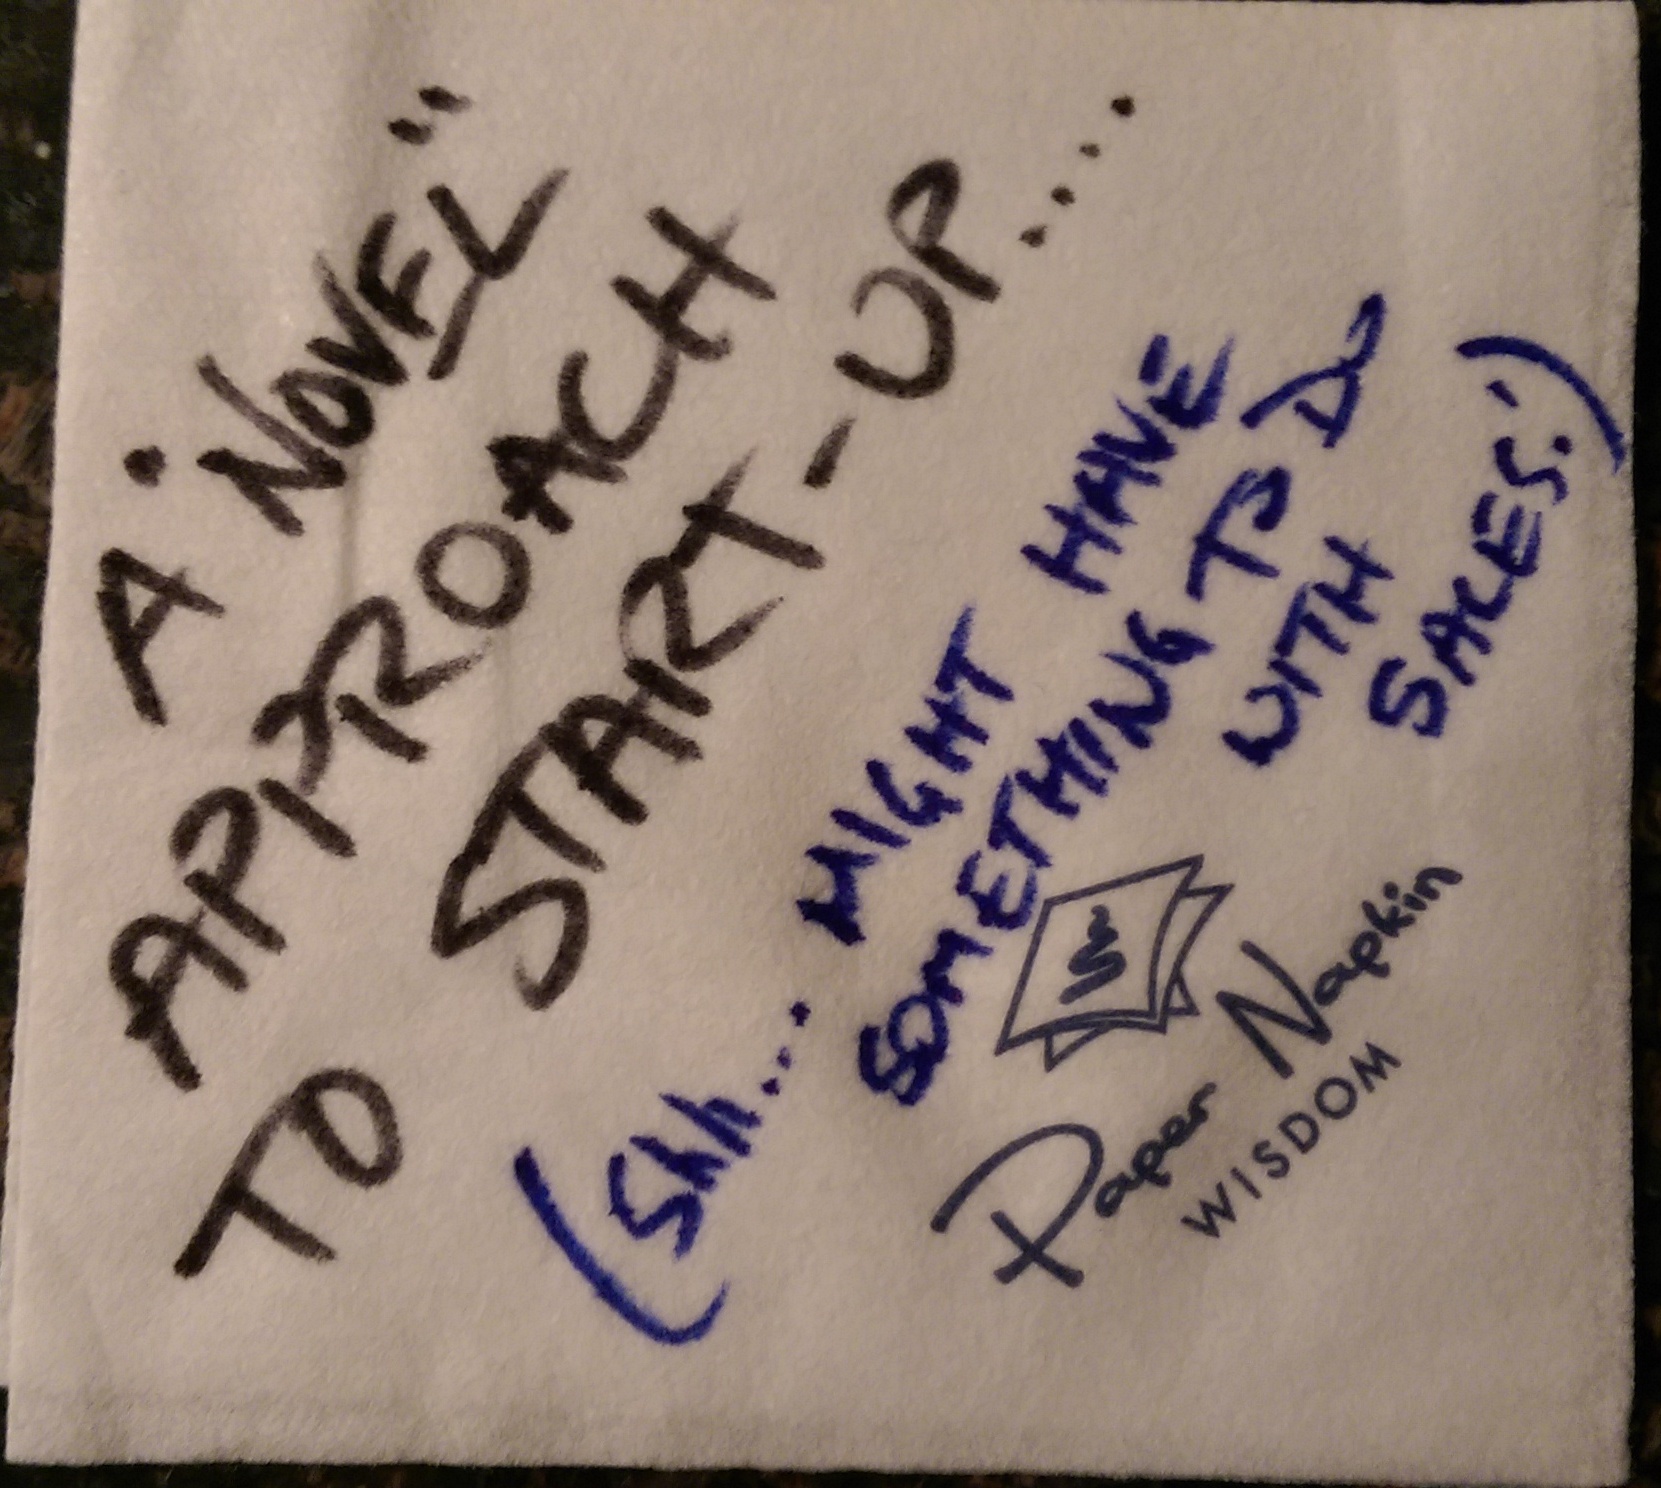 A "NOVEL"
APPROACH
TO START-UP....
(Shh.... MIGHT HAVE
SOMETHING TO DO
WITH
SALES!)
Paper Napkin
WISDOM